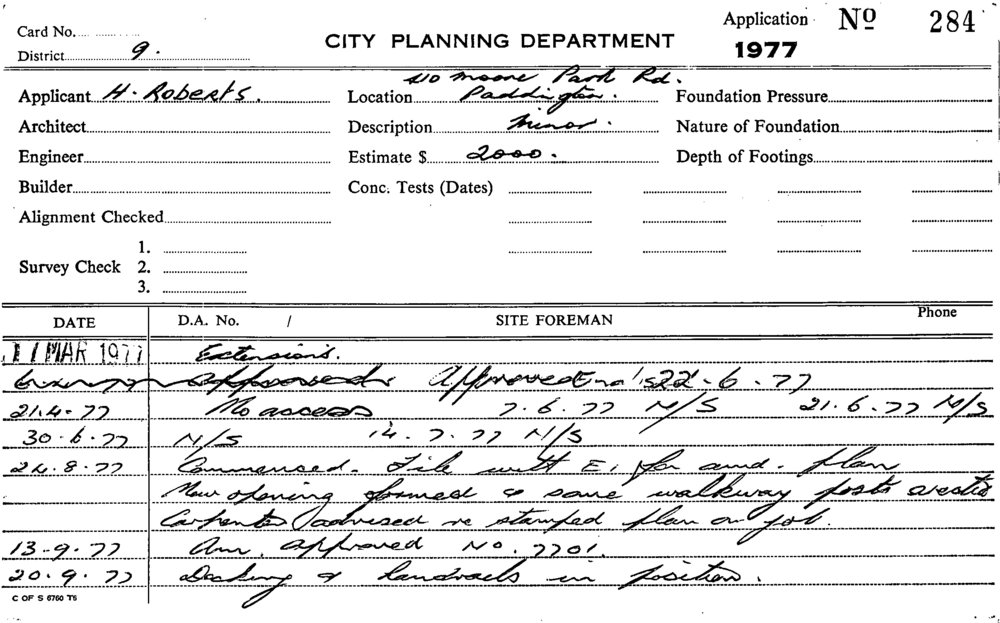 Card No.
District 9.
CITY PLANNING DEPARTMENT
Application No 284
1977
Applicant H. Roberts.
Location 410 Moore Park Rd. Paddington.
Foundation Pressure
Architect
Description Minor.
Nature of Foundation
Engineer
Estimate $ 2000.
Depth of Footings
Builder
Conc. Tests (Dates)
Alignment Checked
Survey Check
1.
2.
3.
DATE D.A. No. / SITE FOREMAN Phone
11 MAR 1977 Extensions.
approved Approved 22.6.77
21.4.77 No access 7.6.77 N/S 21.6.77 N/S
30.6.77 N/S 14.7.77 N/S
24.8.77 Commenced. File with E, for amd. plan
New opening formed & some walkway posts erected
Carpenter advised re stamped plan on job.
13-9-77 Am. approved No. 7701.
20.9.77 Decking & handrails in position.
C OF S 6760 T5